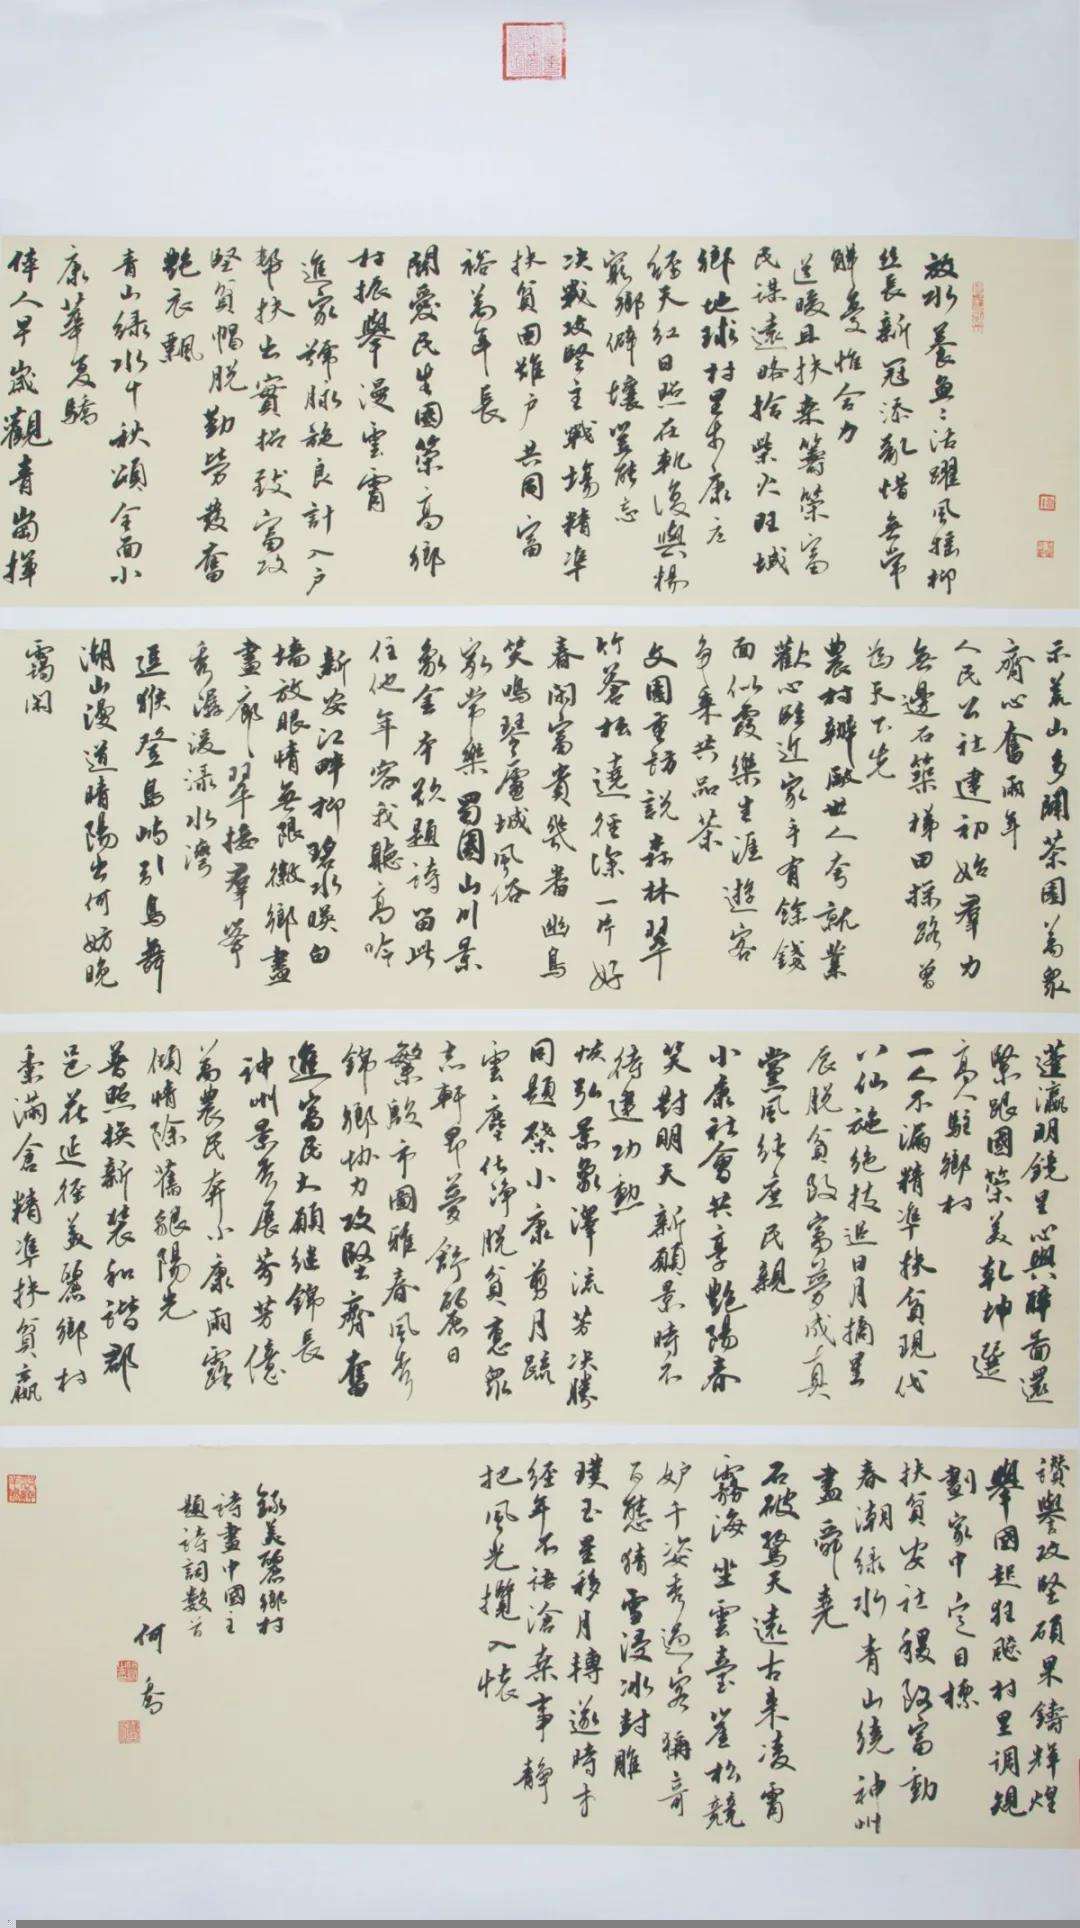 放水養魚〻活躍風搖柳
絲長新冠添亂惜無常
解憂惟合力
送暖且扶桑籌策富
民謀遠略拾柴火旺城
鄉地球村里步康庄
綺天紅日照在軌復興楊
窮鄉僻壤豈能忘
决戰攻堅主戰場精準
扶貧困難户共同富
裕萬年長
關愛民生國策高鄉
村振舉漫雲霄
進家號脉施良計入户
幫扶出實招致富攻
堅貧帽脱勤勞發奮
艷衣飄
青山緑水千秋頌全面小
康華夏驕
偉人早歲觀青崗揮
示荒山多闢茶園萬衆
齊心奮兩年
人民公社建初始羣力
無邊石築梯田探路曾
為天下先
農村辦厰世人夸就業
歡心歸近家手有餘錢
面似霞樂生涯遊客
争来共品茶
文園重訪説森林翠
竹蒼松遶徑深一片好
春閑富貴幾番幽鳥
笑鳴琴廬城風俗
家常樂蜀國山川景
象金本欲題詩留此
住他年容我聽高吟
新安江畔柳碧水映白
墙放眼情無限徽鄉盡
畫廊翠接羣峯
秀潺湲渌水灣
逗猴登島嶼引鳥舞
湖山漫道晴陽出何妨晚
靄閑
蓬瀛明鏡里心與醉面還
緊跟國策美乾坤選
高人駐鄉村
一人不漏精準扶貧現代
八仙施絶技追日月摘星
辰脱貧致富夢成真
黨風結庶民親
小康社會共享艷陽春
笑對明天新願景時不
待建功勲
恢弘景象澤流芳决勝
同題檠小康剪月疏
雲塵化净脱貧惠衆
志軒昂夢舒麗日
繁歐市園雅春風秀
錦鄉协力攻堅齊奮
進富民大願继錦長
神州景秀展芬芳億
萬農民奔小康雨露
傾情除舊貌陽光
普照换新裝和諧郡
邑花延徑美麗鄉村
黍滿倉精準扶貧贏
讃譽攻堅碩果鑄輝煌
舉國起狂飈村里调規
劃家中定目標
扶貧安社稷致富動
春潮緑水青山繞神州
盡舜堯
石破驚天遠古来凌霄
霧海坐雲臺崖松競
妒千姿秀過客稱奇
百態猜雪浸冰封雕
璞玉星移月轉邀時才
經年不語滄桑事靜
把風光攬入懷
録美麗鄉村
詩畫中國主
題詩詞數首
何喬